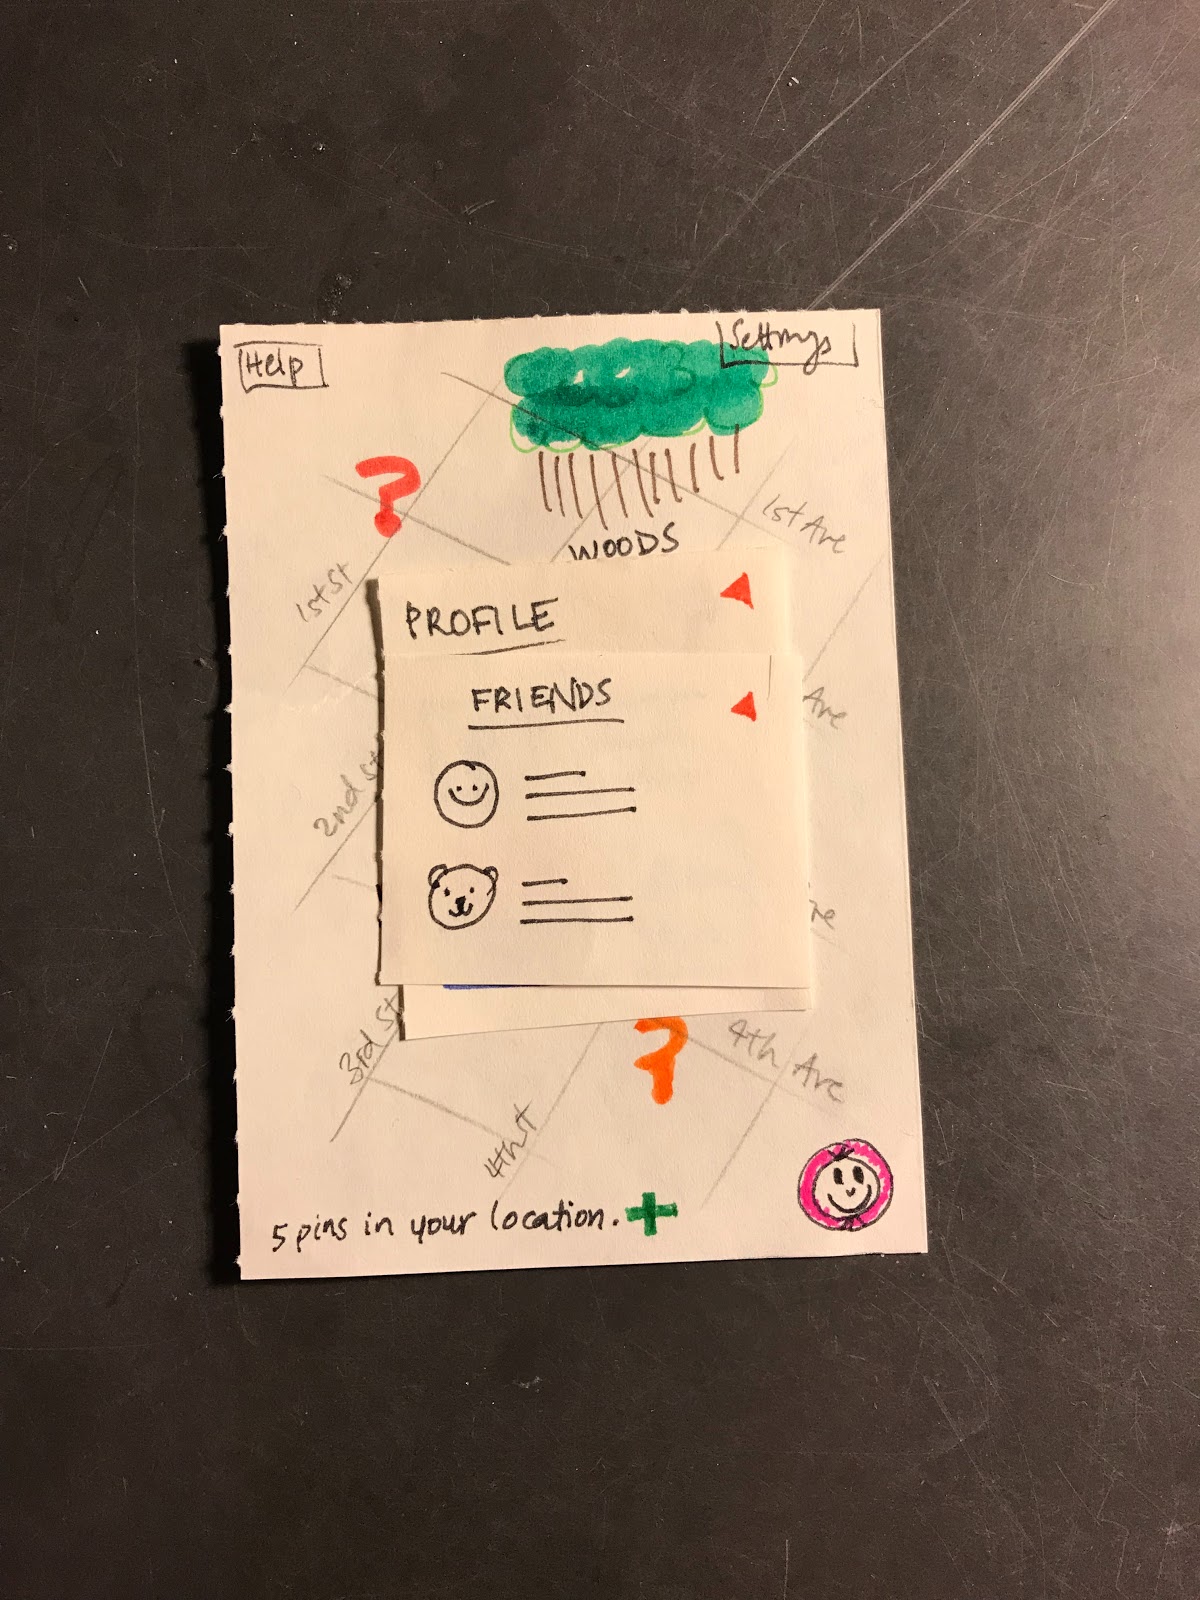 Help
Settings
?
1st Ave
WOODS
1st St
PROFILE
FRIENDS
Ave
2nd St
3rd St
?
4th Ave
4th St
5 pins in your location. +